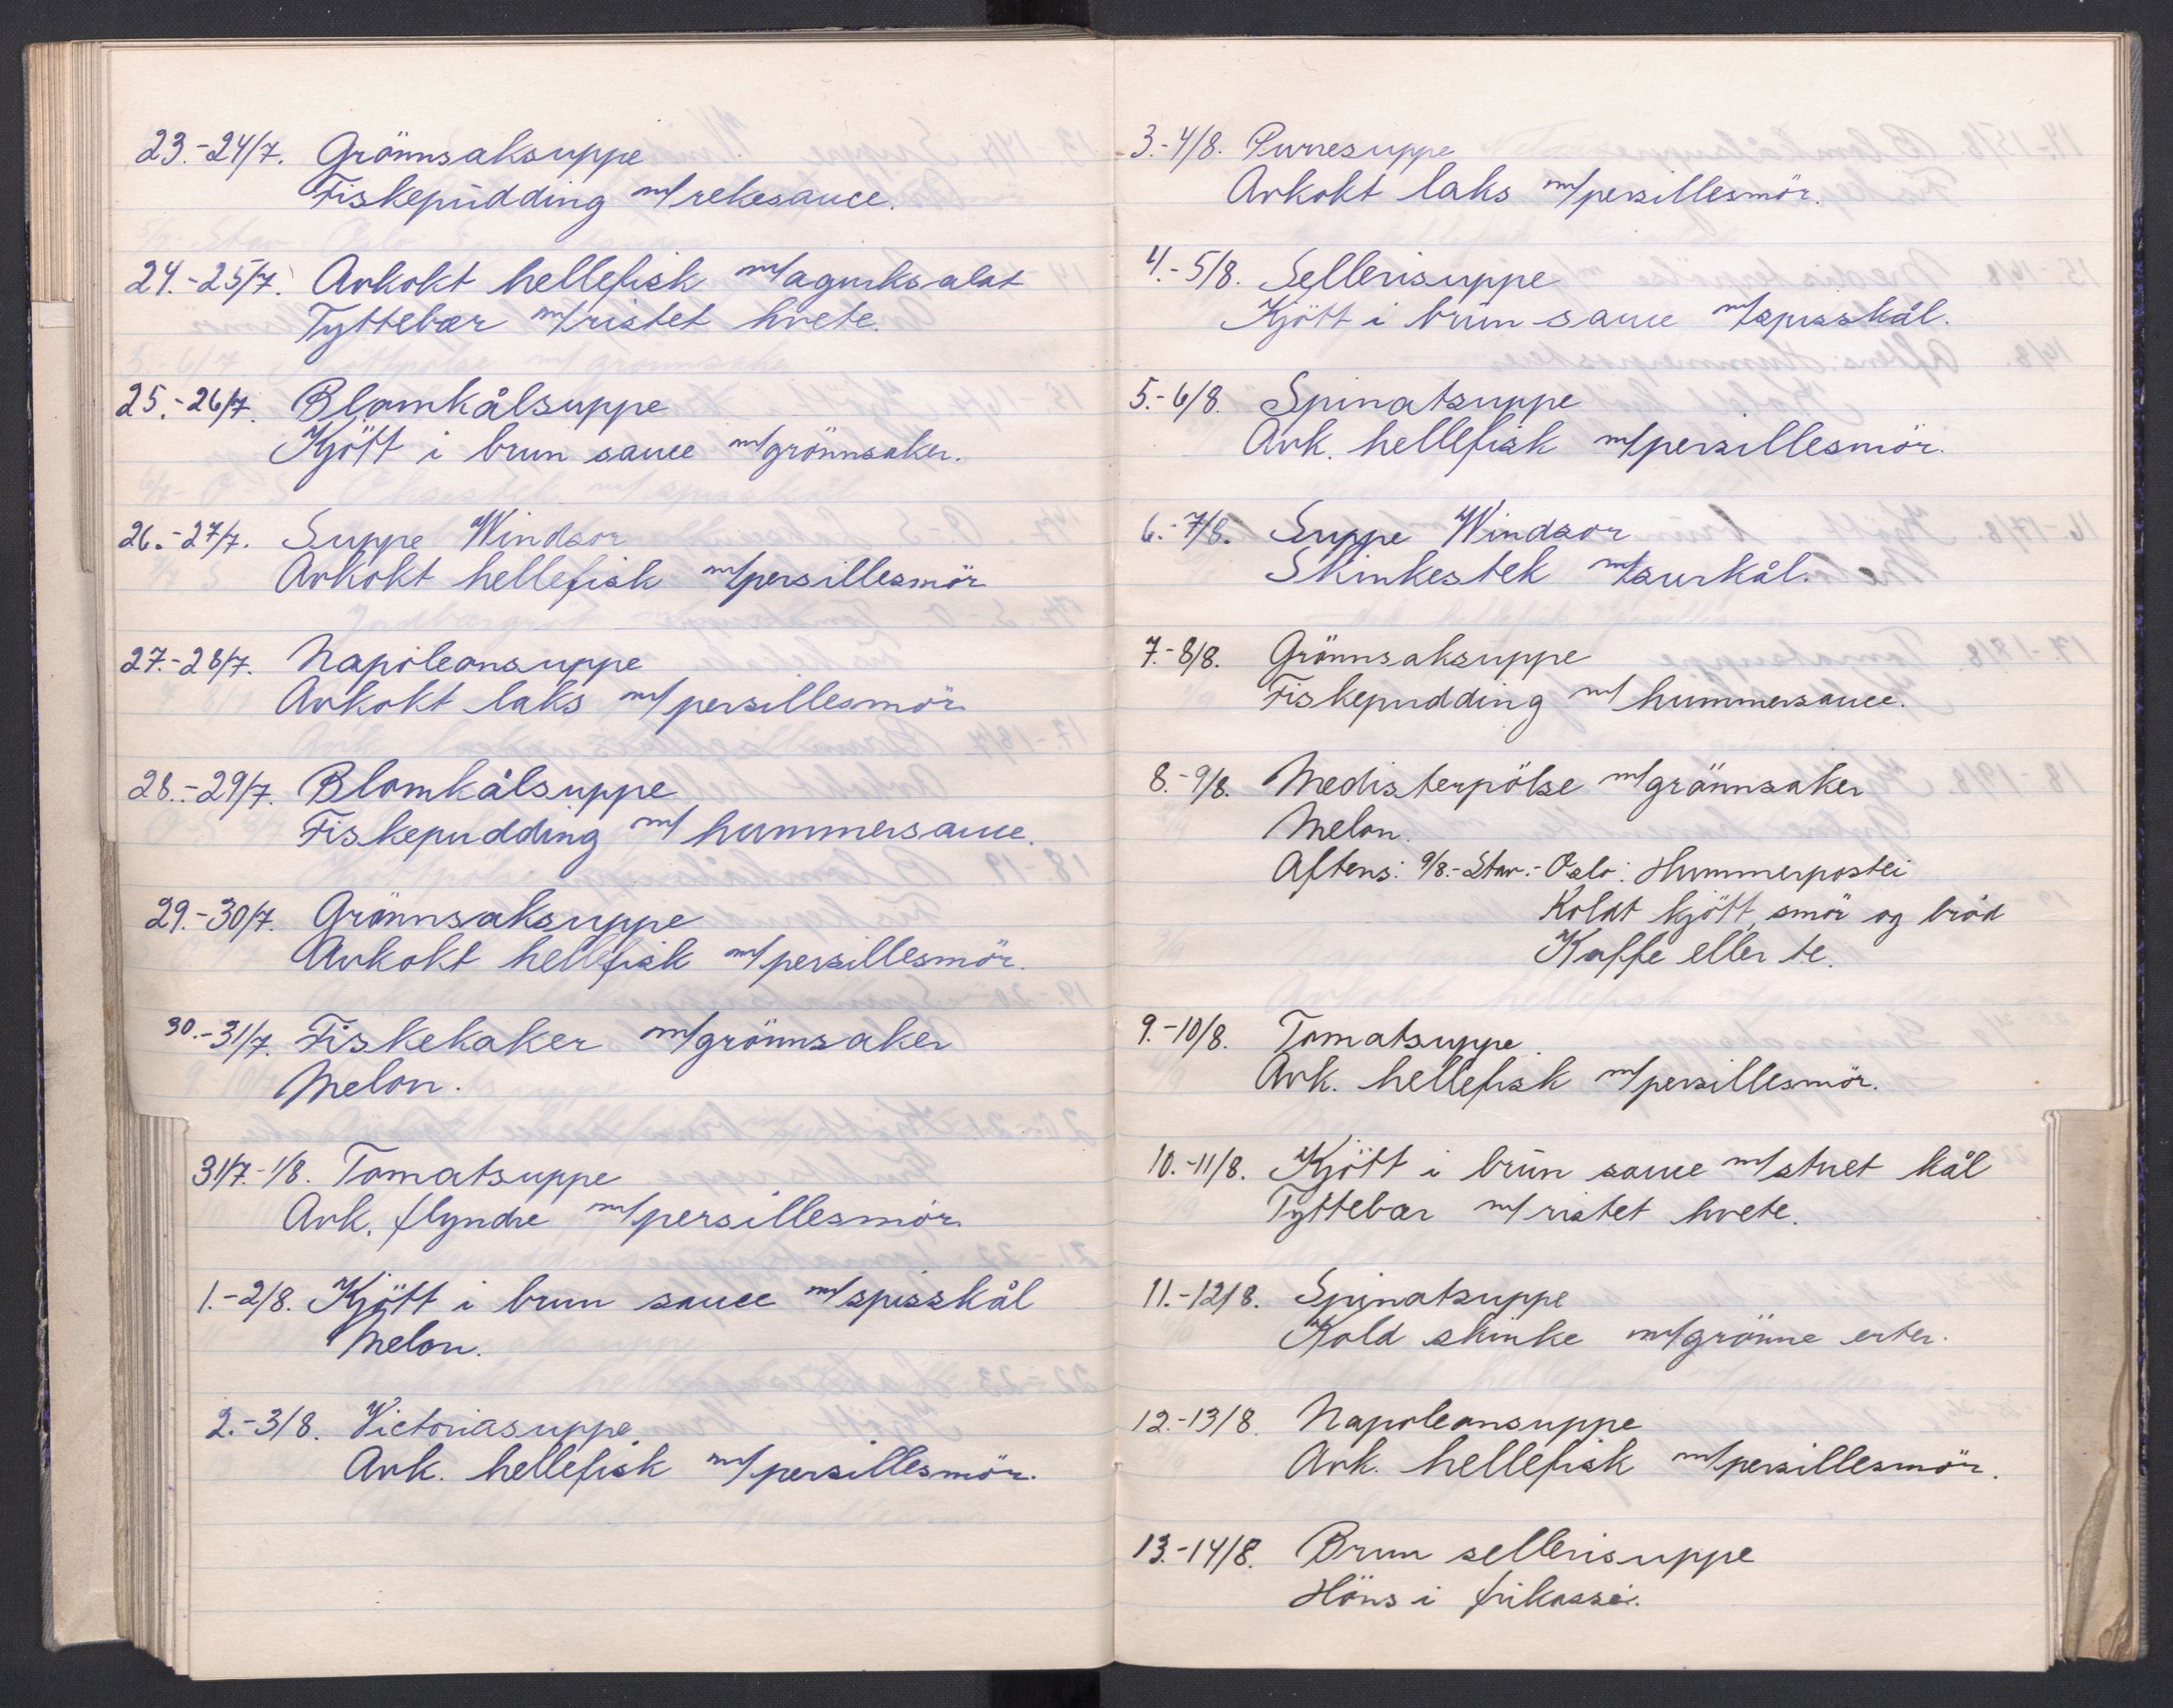 23.-24/7. Grönnsaksuppe
Fiskepudding m/rekesauce.
24.-25/7. Avkokt hellefisk m/agurksalat
Tyttebær m/ristet hvete.
25.-26/7. Blomkålsuppe
Kjött i brun sauce m/grönnsaker.
26.-27/7. Suppe Windsor
Avkokt hellefisk m/persillesmör
27.-28/7. Napoleonsuppe
Avkokt laks m/persillesmör
28.-29/7. Blomkålsuppe
Fiskepudding m/hummersauce.
29.-30/7. Grönnsaksuppe
Avkokt hellefisk m/persillesmör.
30.-31/7. Fiskekaker m/grönnsaker
Melon.
31/7.-1/8. Tomatsuppe
Avk. flyndre m/persillesmör
1.-2/8. Kjött i brun sauce m/spisskål
Melon.
2.-3/8. Victoriasuppe
Avk. hellefisk m/persillesmör.
3.-4/8. Purresuppe
Avkokt laks m/persillesmör.
4.-5/8. Sellerisuppe
Kjött i brun sauce m/spisskål.
5.-6/8. Spinatsuppe
Avk. hellefisk m/persillesmör.
6.-7/8. Suppe Windsor
Skinkestek m/surkål.
7.-8/8. Grönnsaksuppe
Fiskepudding m/hummersauce.
8.-9/8. Medisterpölse m/grönnsaker
Melon.
Aftens: 9/8.-Stav.-Oslo: Hummerpostei
Koldt kjött, smör og bröd
Kaffe eller te.
9.-10/8. Tomatsuppe.
Avk. hellefisk m/persillesmör.
10.-11/8. Kjött i brun sauce m/stuet kål
Tyttebær m/ristet hvete.
11.-12/8. Spinatsuppe
Kold skinke m/grönne erter.
12.-13/8. Napoleonsuppe
Avk. hellefisk m/persillesmör.
13.-14/8. Brun sellerisuppe
Höns i frikassé.